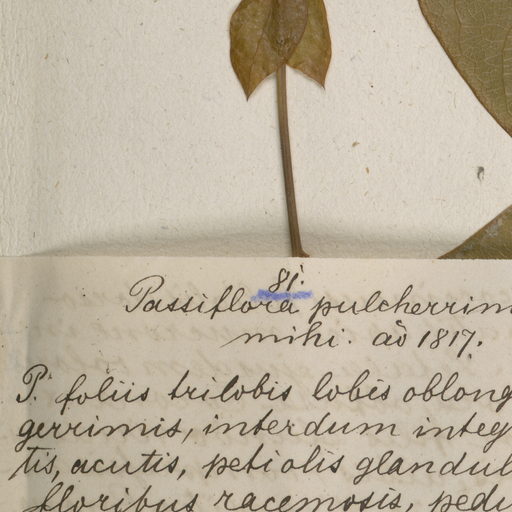 81.
Passiflora pulcherrim
mihi. ao 1817.
P. foliis trilobis lobis oblong
gerrimis, interdum integ
tis, acutis, petiolis glandul
floribus racemosis, pedu